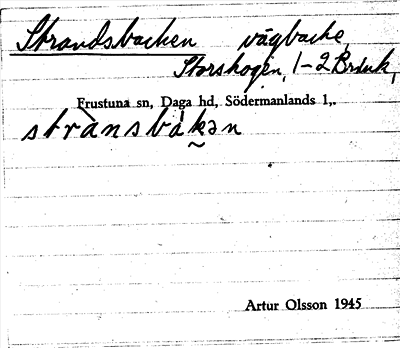 Strandsbacken vägbacke,
Storskogen, 1-2 Bruk,
Frustuna sn, Daga hd, Södermanlands l,.
strànsbákən
Artur Olsson 1945